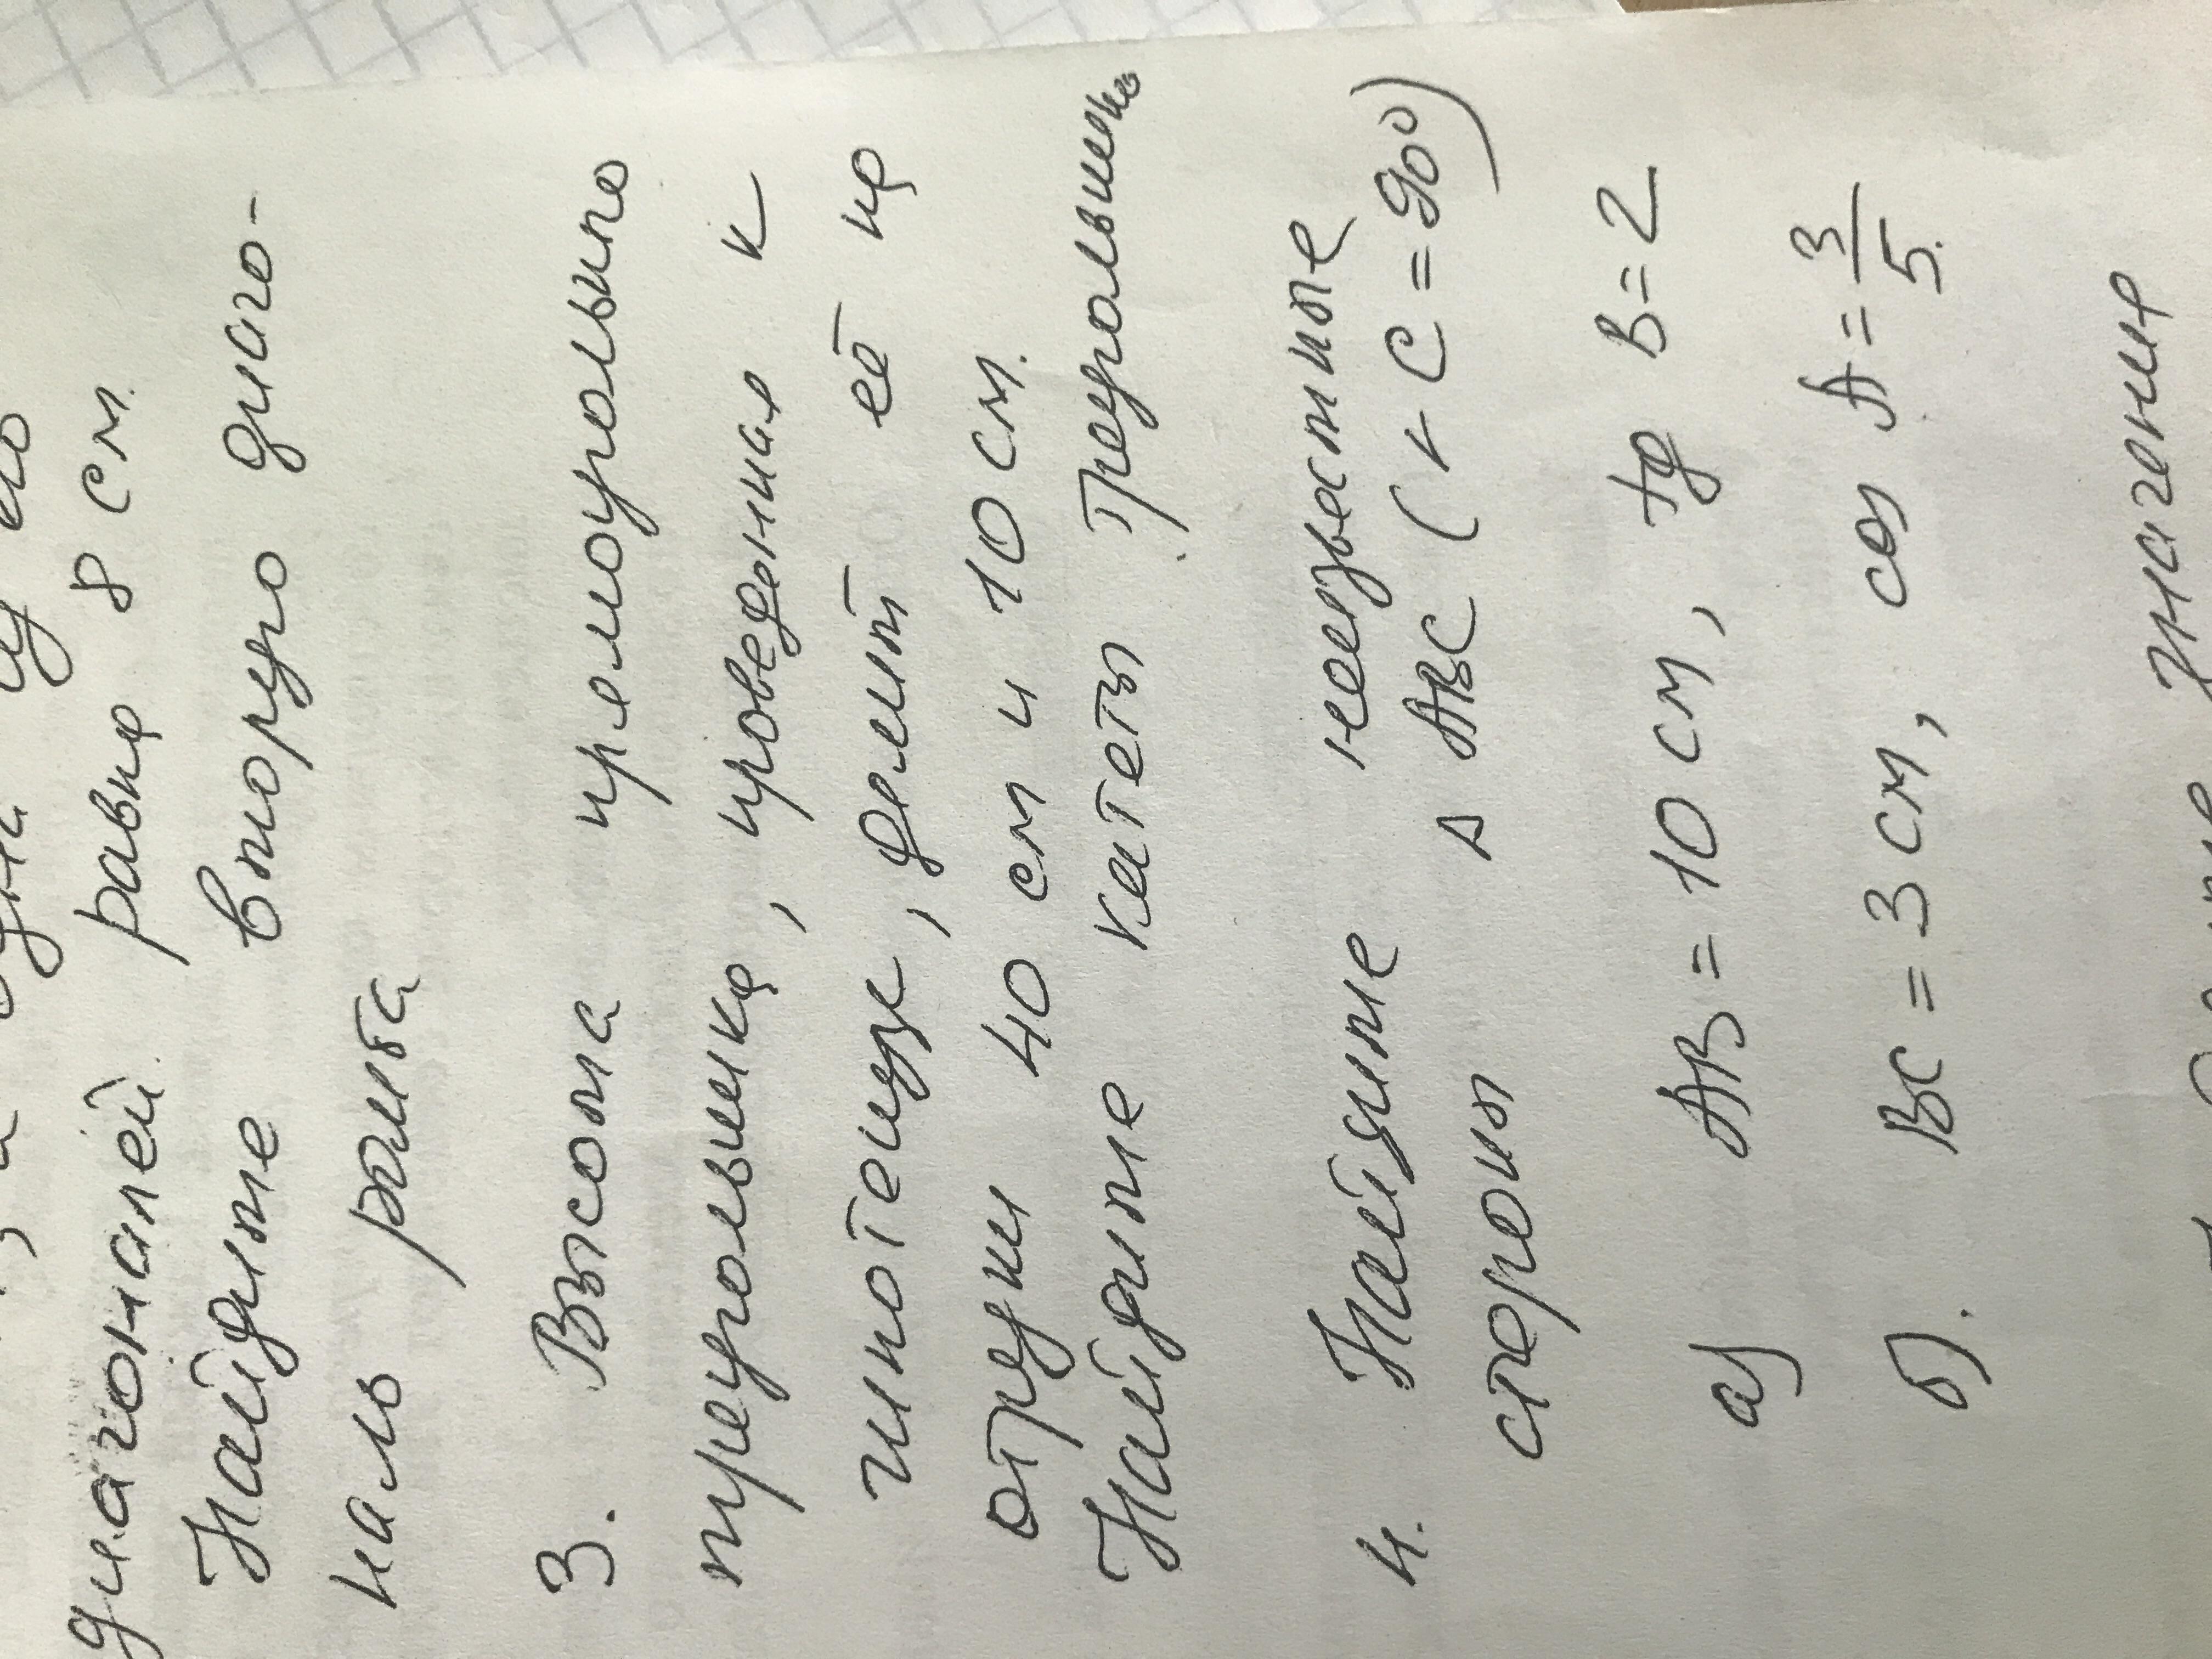 диагоналей равна 8 см.
Найдите вторую диаго-
наль ромба
3. Высота прямоугольного
треугольника, проведенная к
гипотенузе, делит её на
отрезки 40 см и 10 см.
Найдите катеты треугольника
4. Найдите неизвестные
стороны Δ ABC (∠ C = 90°)
а) AB = 10 см, tg B = 2
б). BC = 3 см, cos A = 3/5.
значение